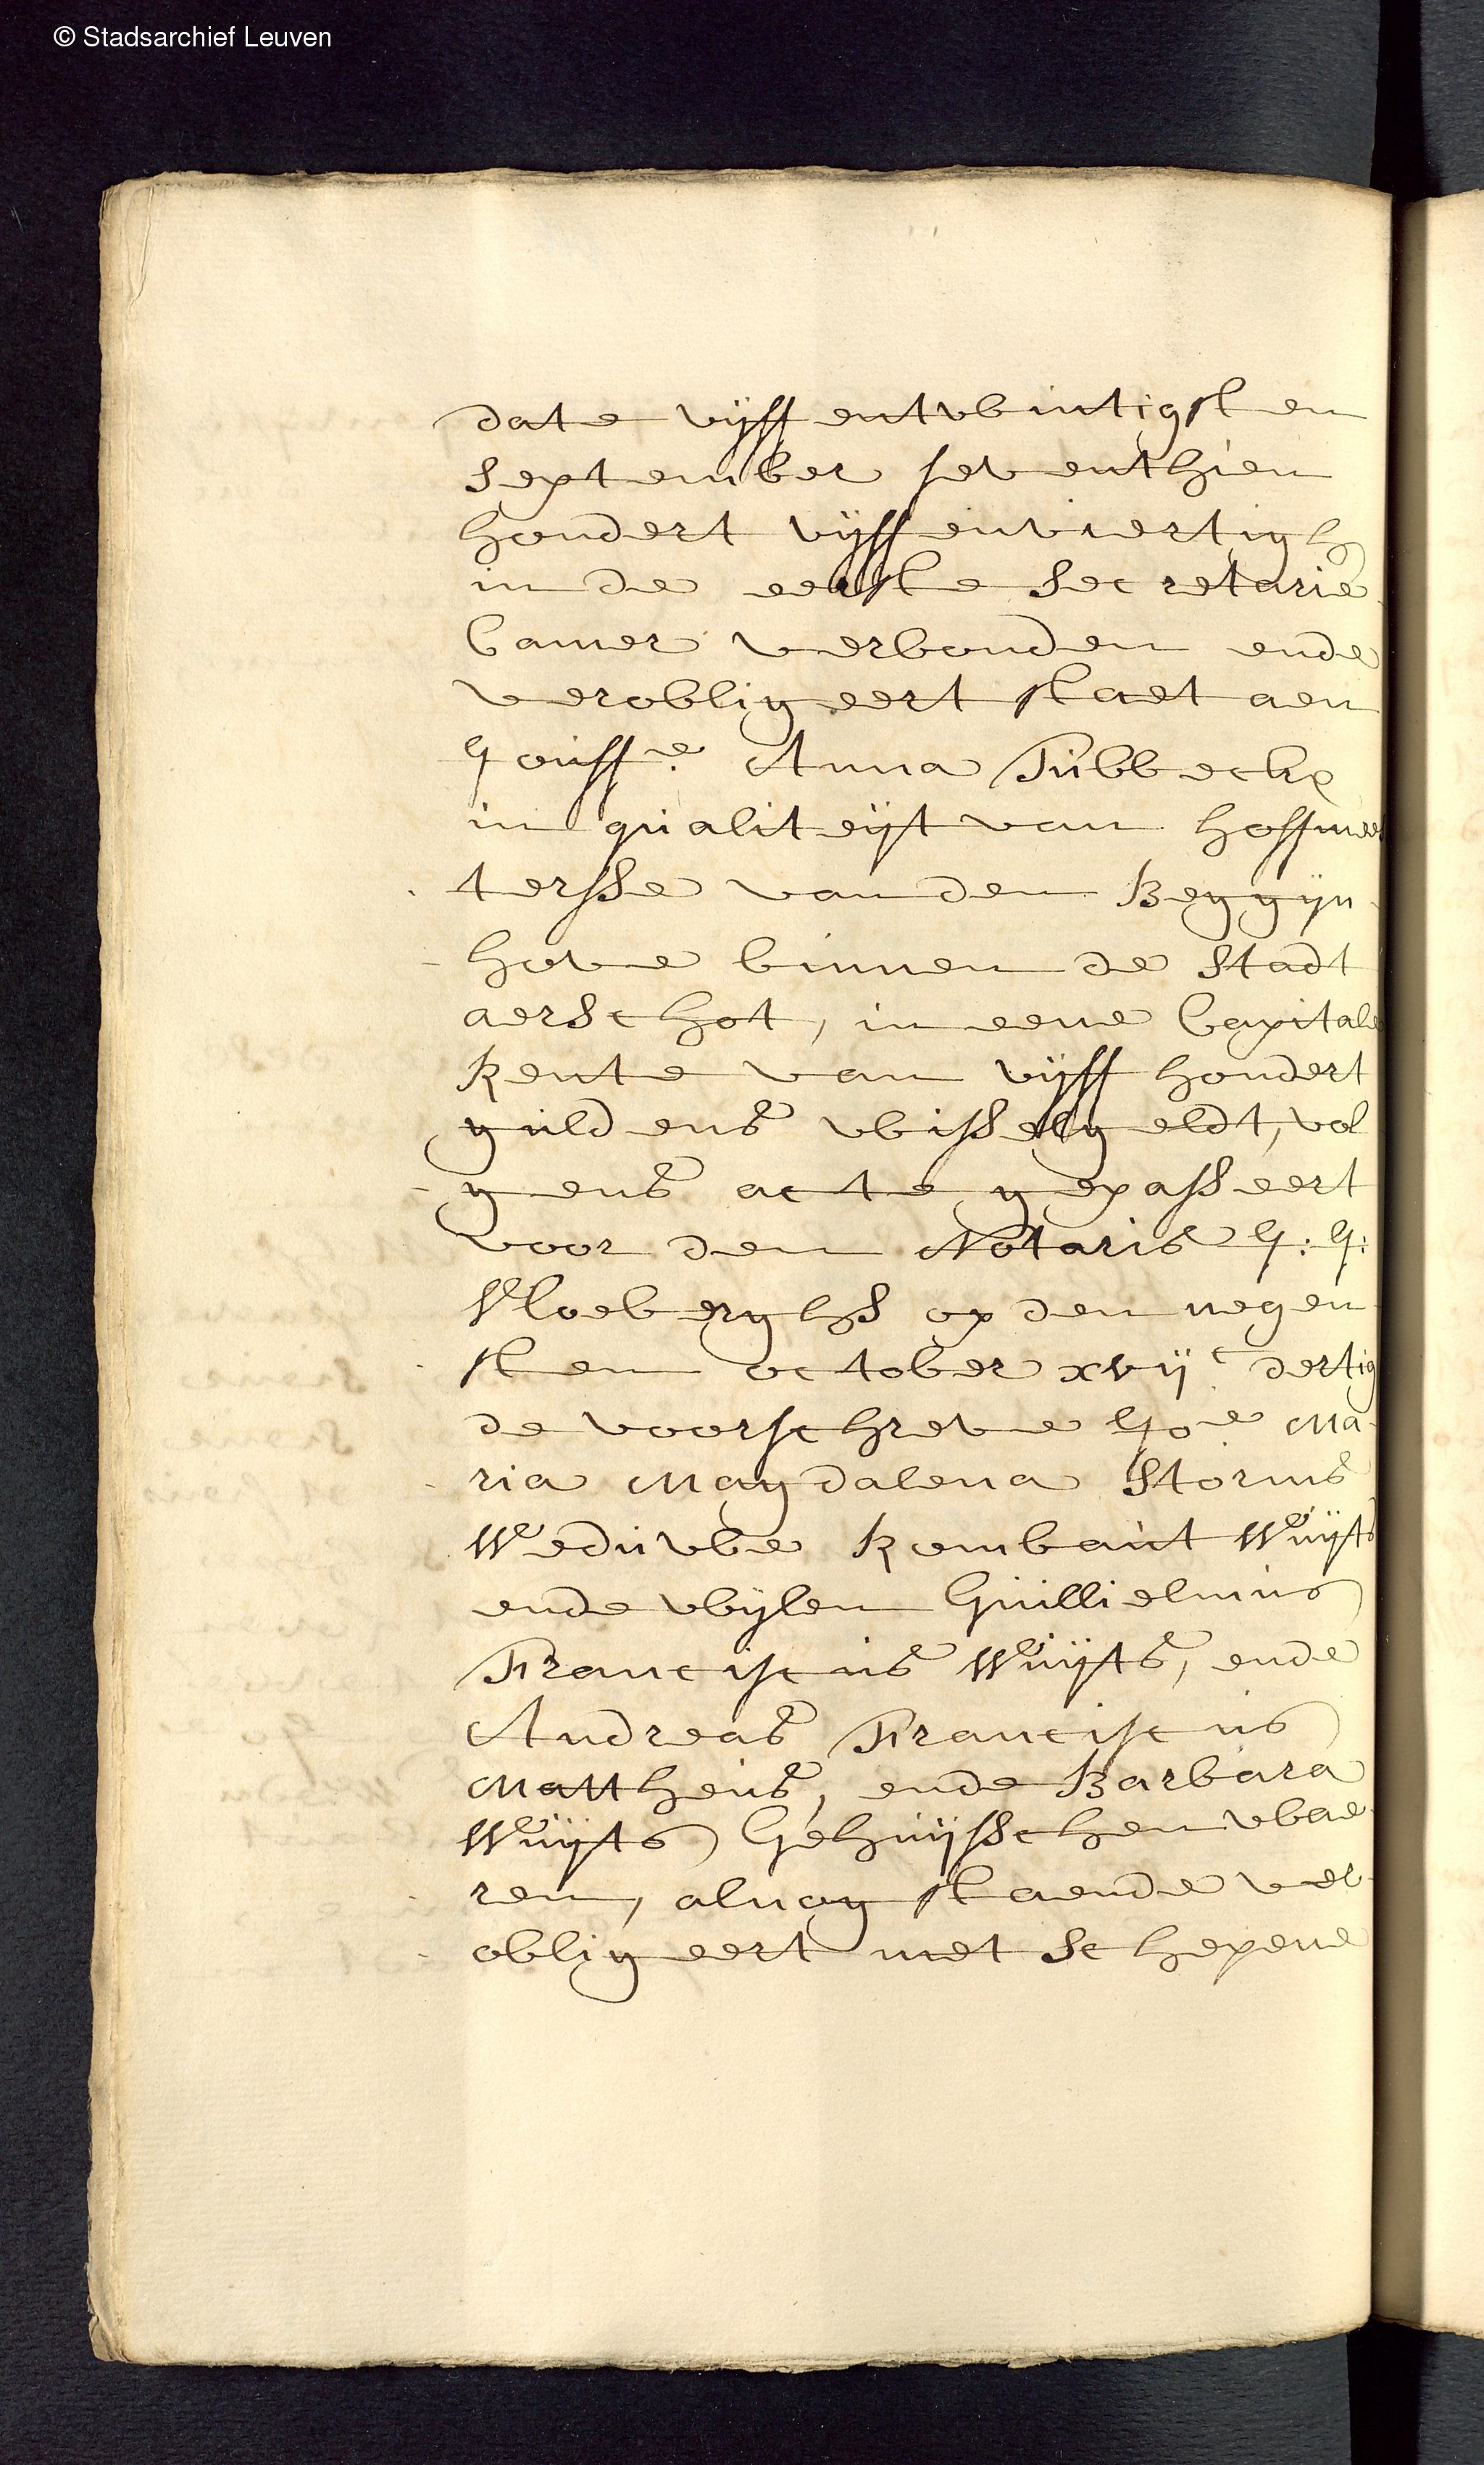 © Stadsarchief Leuven
date vijff entwintigsten
September seventhien
hondert vijff enviertigh
in de eerste Secretarie
Camer verbonden ende
verobligeert staet aen
Jouffe. Anna Tubbeckx
in qualiteijt van hoffmees
tersse van den Beggijn
hove binnen de Stadt
aerschot, in eene Capitale
Rente van vijff hondert
guldens wisselgeldt, vol
gens acte gepasseert
voor den Notaris J: J:
Vloeberghs op den negen
sten october xvijc dertig
de voorschreve Joe Ma
ria Magdalena Storms
Weduwe Rombaut Wuijts
ende wijlen Guillielmus
Franciscus Wuijts, ende
Andreas Franciscus
Mattheus, ende Barbara
Wuijts Gehuijsschen wae
ren, alnog staende ver
obligeert met Schepene